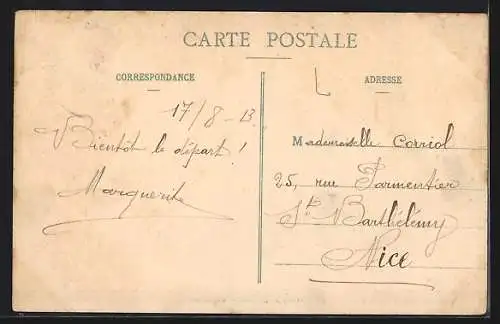 CARTE POSTALE
CORRESPONDANCE
ADRESSE
17/8-13
Bientôt le départ !
Marguerite
Mademoiselle Corriol
25, rue Parmentier
St Barthélémy
Nice